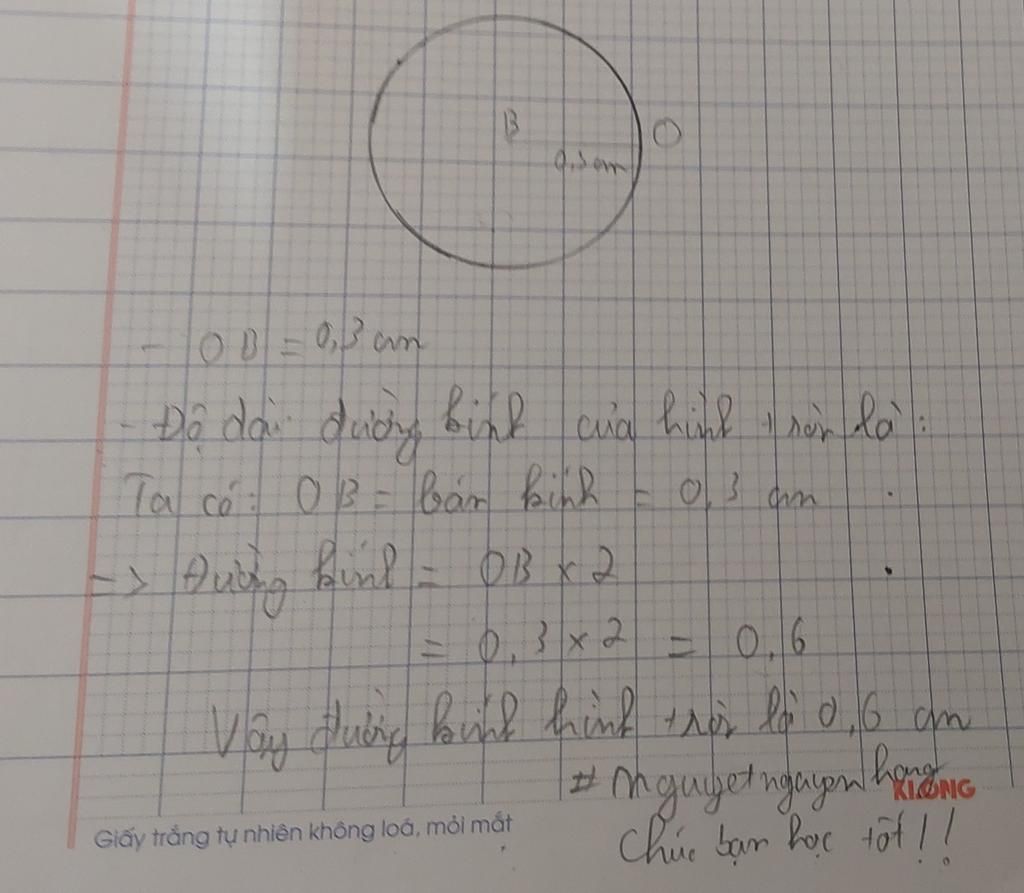 B
O
0,3 cm
- OB = 0,3 cm
- Độ dài đường kính của hình tròn là:
Ta có: OB = bán kính = 0,3 cm
=> Đường kính = OB × 2
= 0,3 × 2 = 0,6
Vậy đường kính hình tròn là 0,6 cm
# nguyetnguyenhong
KLONG
Giấy trắng tự nhiên không loá, mỏi mắt
Chúc bạn học tốt!!